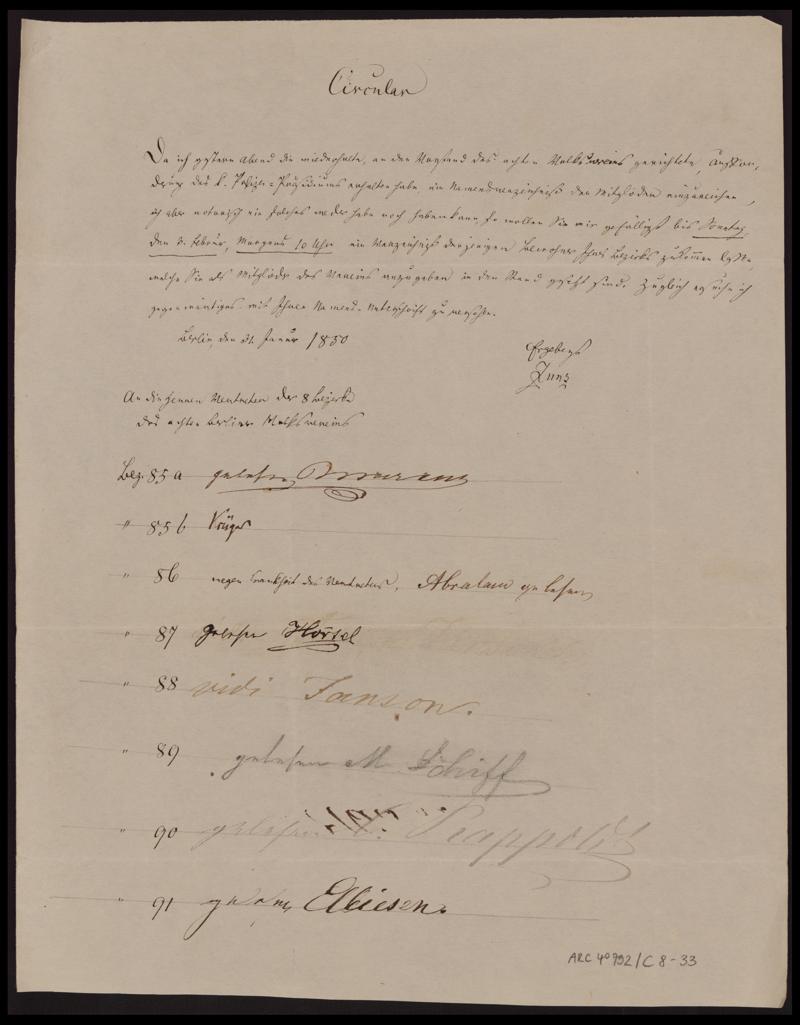 Circular
Da ich gestern Abend die wiederholte, an den Vorstand des achten Volksvereins gerichtete, Aufforderung
des k. Polizei-Präsidiums erhalten habe, ein Namensverzeichniß der Mitglieder einzureichen,
ich aber notorisch ein solches weder habe noch haben kann, so wollen Sie mir gefälligst bis Sonntag,
den 3. Februar, Morgens 10 Uhr ein Verzeichniß derjenigen Bewohner Ihres Bezirks zukommen lassen,
welche Sie als Mitglieder des Vereins anzugeben in den Stand gesetzt sind. Zugleich ersuche ich
gegenwärtiges mit Ihrer Namens-Unterschrift zu versehen.
Berlin, den 31. Januar 1850
Ergebenst
Zunz
An die Herren Vertreter der 8 Bezirke
des achten Berliner Volksvereins
Bez. 85 a gelesen
" 85 b Krüger
" 86 wegen Krankheit des Vertreters, Abraham gelesen
" 87 gelesen
" 88 vidi Janson.
" 89 gelesen M Schiff
" 90 gelesen
" 91 gelesen
ARC 4° 792/C 8-33